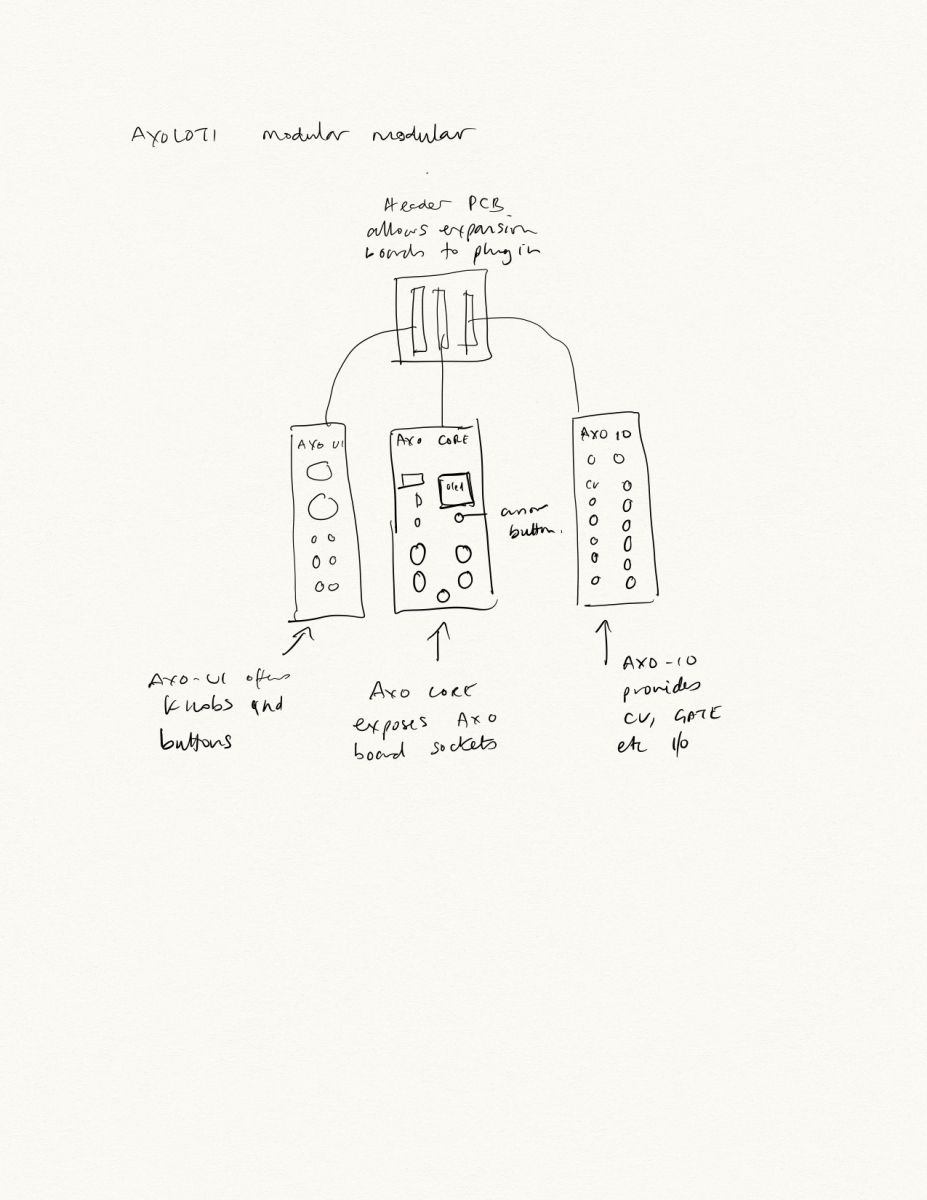 AXOLOTI modular modular
Header PCB
allows expansion
boards to plug in
AXO UI
AXO CORE
oled
AXO IO
CV
button.
AXO-UI offers
knobs and
buttons
AXO CORE
exposes AXO
board sockets
AXO-IO
provides
CV, GATE
etc I/O